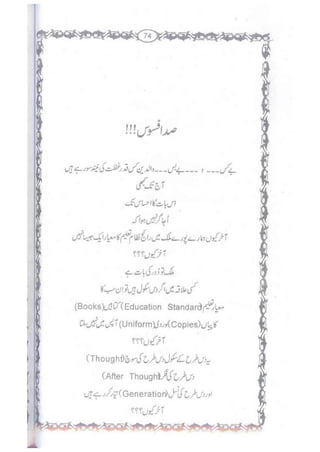 74
صد افسوس!!!
بے کس۔۔۔ و ۔۔۔بے بس۔۔۔والدین کس قدر غفلت کی نیند سو رہے ہیں
آج تک کبھی
اس بات کا احساس تک
اُجاگر نہیں ہوا کہ
آخر کیوں ہمارے پورے ملک میں رائج نظام تعلیم کا معیار ایک جیسا نہیں
آخر کیوں؟؟؟
ملک تو دُور کی بات ہے
کسی علاقہ میں اگر دس سکول ہیں تو اِن سب کا
معیارِ تعلیم (Education Standard) کتابیں (Books)
کاپیاں (Copies) وردی (Uniform) آپس میں نہیں ملتا
آخر کیوں؟؟؟
یہ دس طرح کے سکول دس طرح کی سوچ (Thought)
دس طرح کی فکر (After Thought)
اور دس طرح کی نسل (Generation) تیار کر رہے ہیں
آخر کیوں؟؟؟